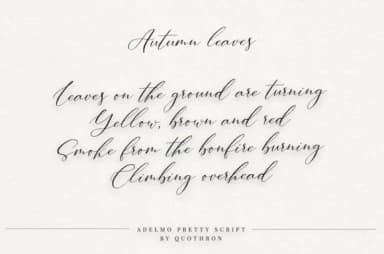 Autumn leaves
Leaves on the ground are turning
Yellow, brown and red
Smoke from the bonfire burning
Climbing overhead
ADELMO PRETTY SCRIPT
BY QUOTHRON